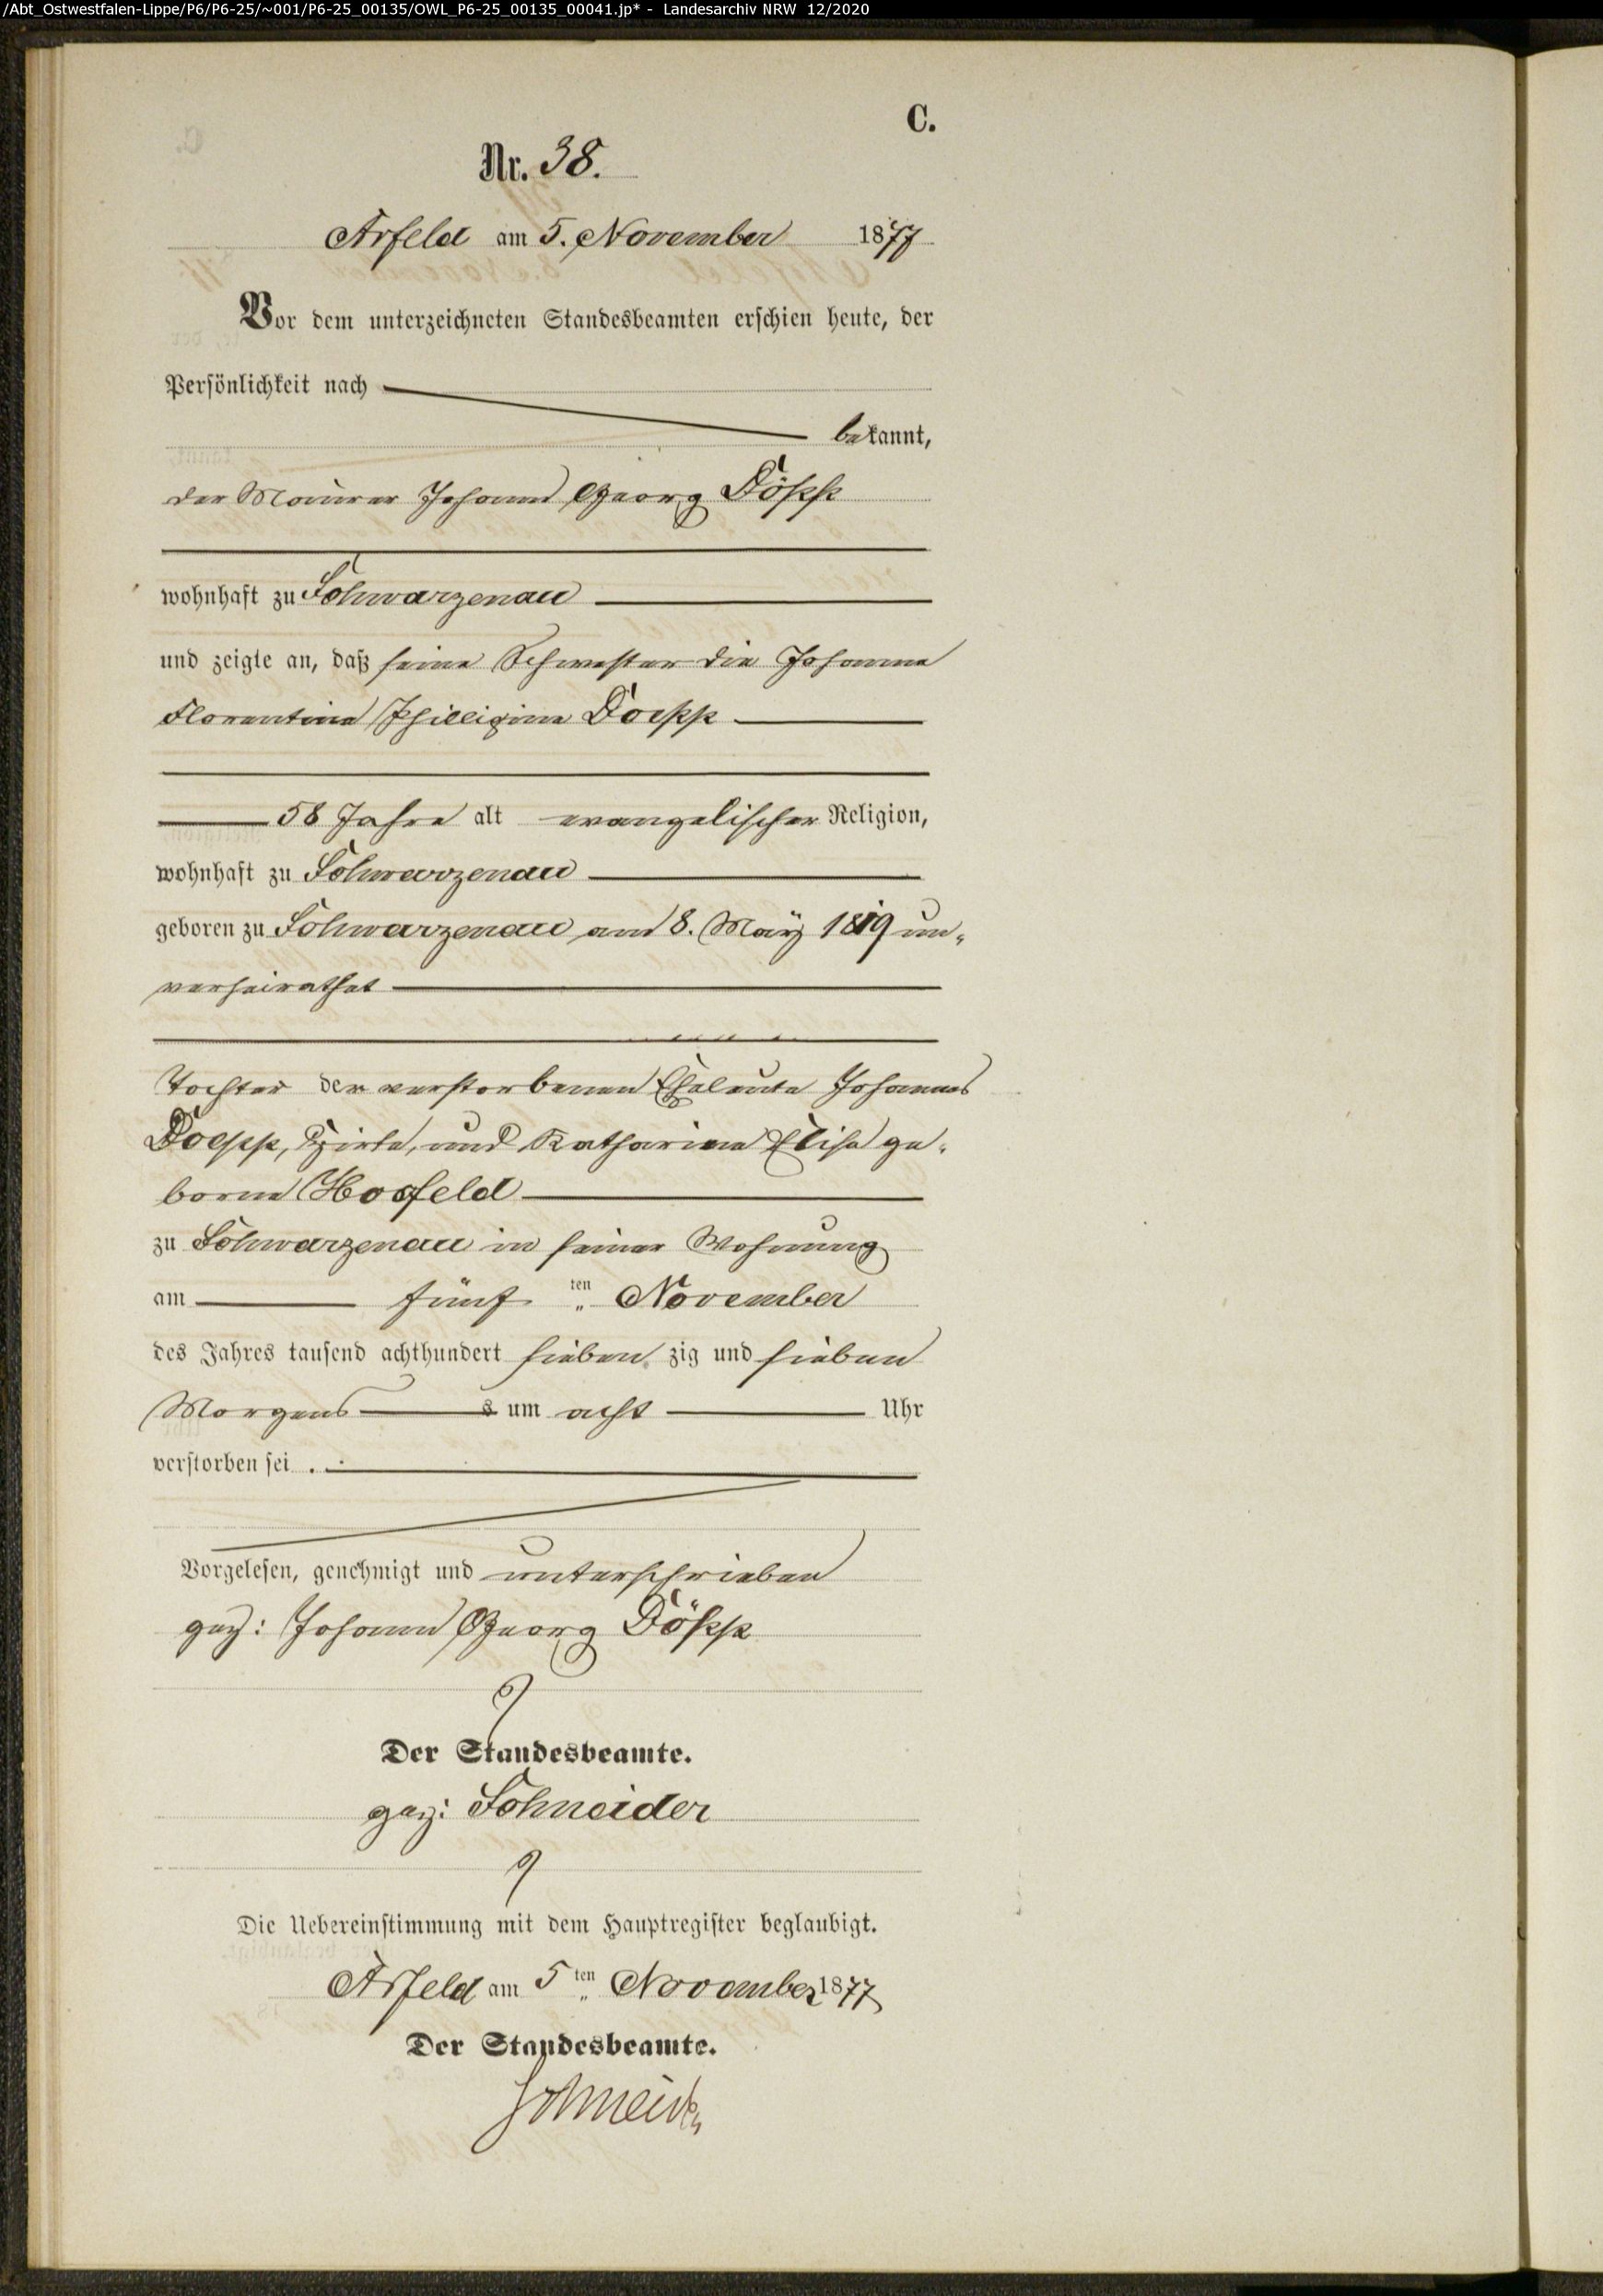 /Abt_Ostwestfalen-Lippe/P6/P6-25/~001/P6-25_00135/OWL_P6-25_00135_00041.jp* - Landesarchiv NRW 12/2020
C.
Nr. 38.
Arfeld am 5. November 1877
Vor dem unterzeichneten Standesbeamten erschien heute, der
Persönlichkeit nach
bekannt,
der Maurer Johann Georg Döpp
wohnhaft zu Schwarzenau
und zeigte an, daß seine Schwester die Johanne
Florentine Philligine Doepp
58 Jahre alt evangelischer Religion,
wohnhaft zu Schwarzenau
geboren zu Schwarzenau am 8. May 1819 un-
verheirathet
Tochter der verstorbenen Eheleute Johannes
Doepp, Hirte, und Katharine Elise ge-
borne Hosfeld
zu Schwarzenau in seiner Wohnung
am fünf ten November
des Jahres tausend achthundert sieben zig und sieben
Morgens s um acht Uhr
verstorben sei.
Vorgelesen, genehmigt und unterschrieben
gez: Johann Georg Döpp
Der Standesbeamte.
gez: Schneider
Die Uebereinstimmung mit dem Hauptregister beglaubigt.
Arfeld am 5ten November 1877
Der Standesbeamte.
Schneider